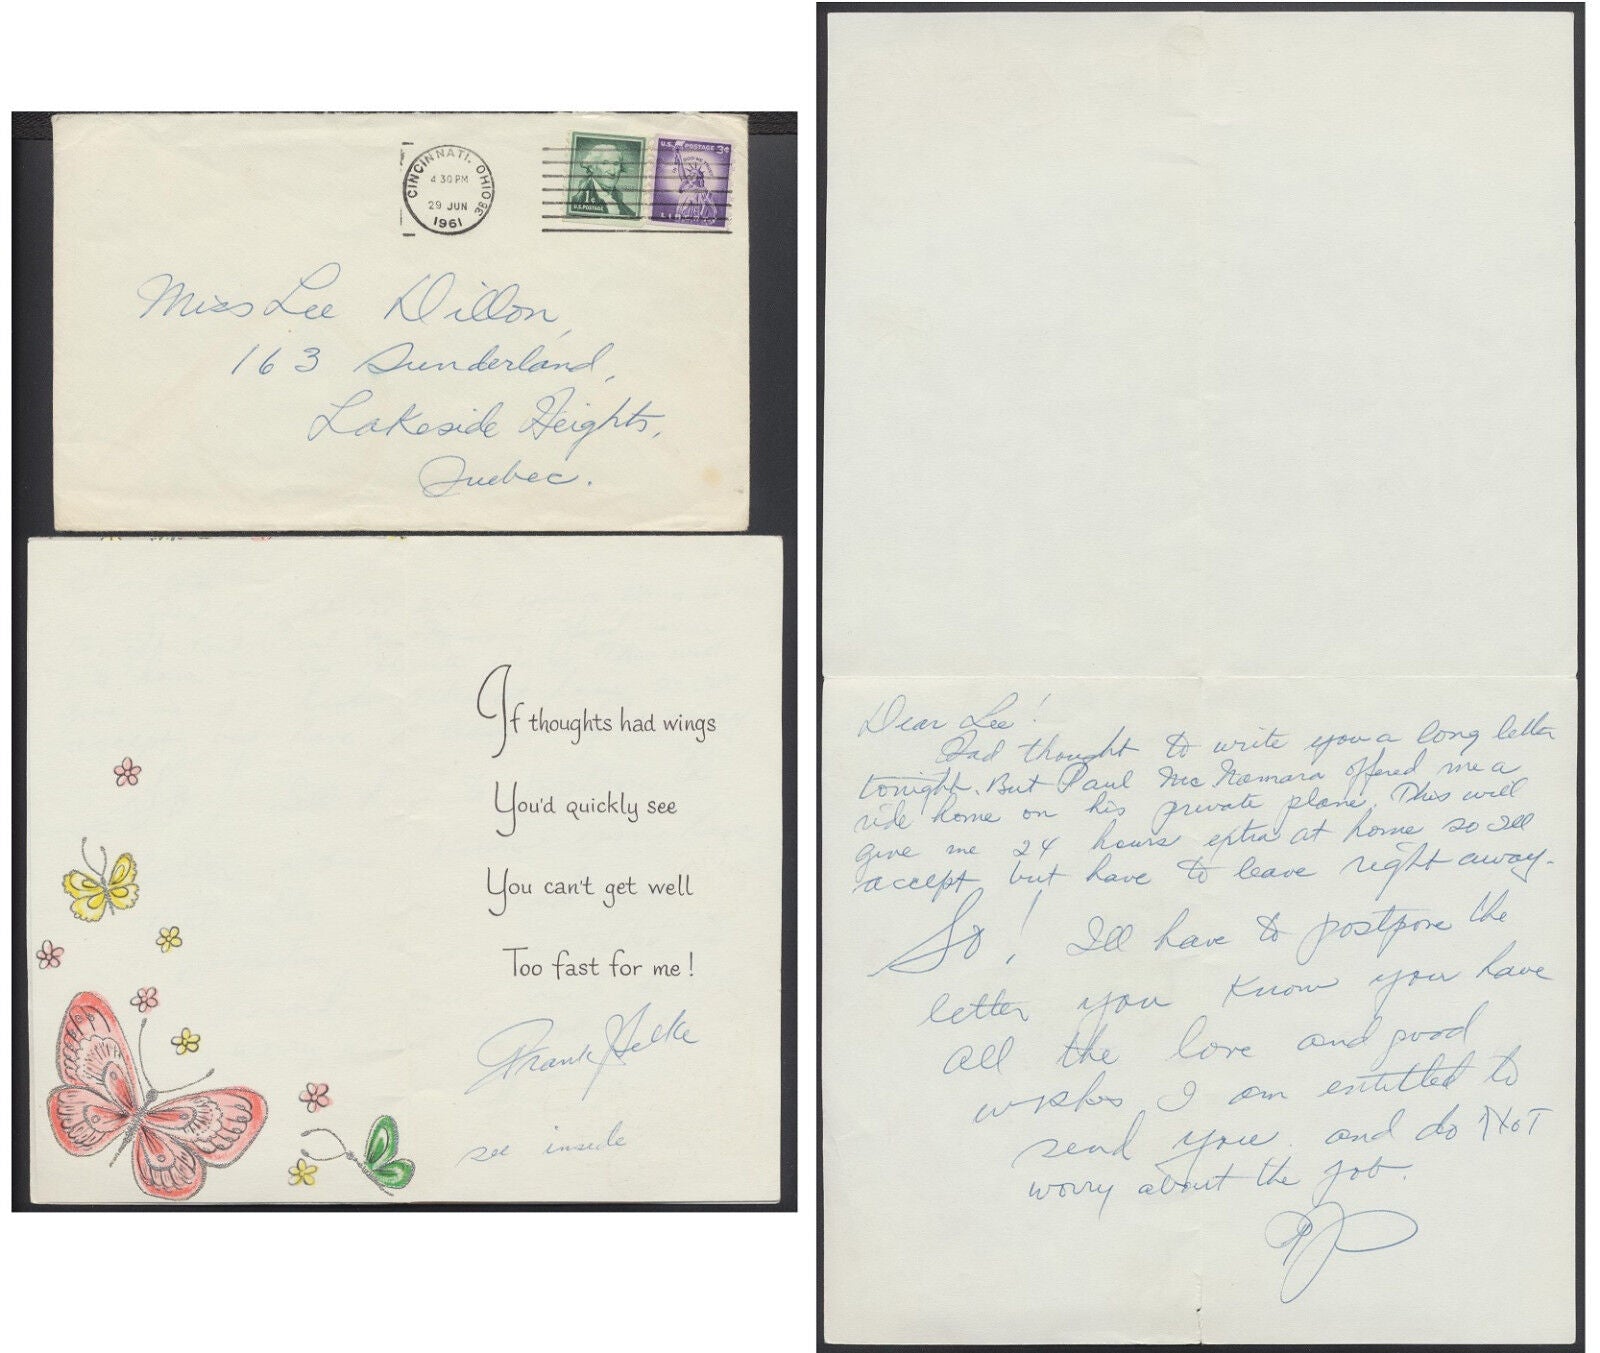 CINCINNATI, OHIO
4 30 PM
29 JUN
1961
1¢
U.S. POSTAGE
U.S. POSTAGE 3¢
IN GOD WE TRUST
LIBERTY
Miss Lee Dillon,
163 Sunderland,
Lakeside Heights,
Quebec.
If thoughts had wings
You'd quickly see
You can't get well
Too fast for me!
Frank Selke
see inside
Dear Lee!
Had thought to write you a long letter
tonight. But Paul McNamara offered me a
ride home on his private plane. This will
give me 24 hours extra at home so I'll
accept but have to leave right away.
So! I'll have to postpone the
letter you know you have
all the love and good
wishes I am entitled to
send you. and do NOT
worry about the job.